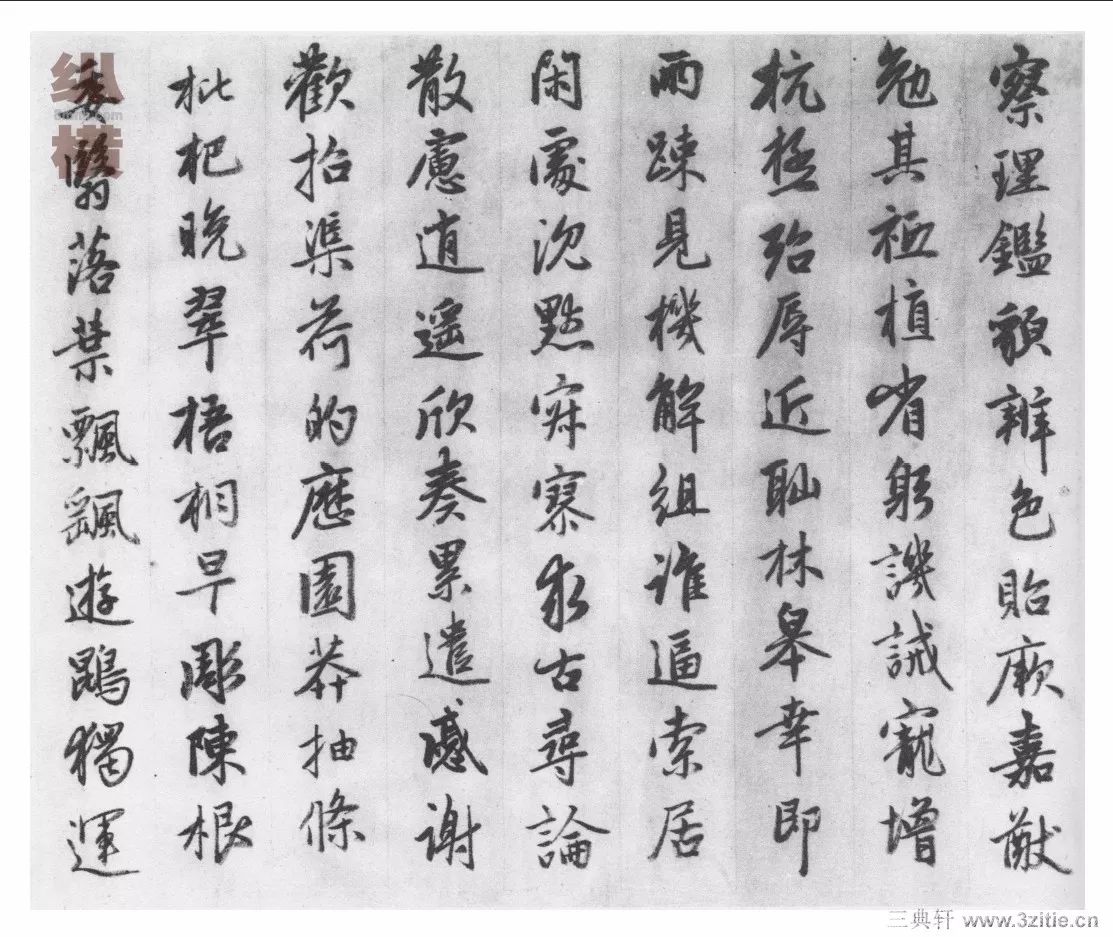 察理鑑貌辨色貽厥嘉猷
勉其祗植省躬譏誡寵增
杭極殆辱近恥林皋幸即
兩踈見機解組誰逼索居
閑處沈默寂寥求古尋論
散慮逍遥欣奏累遣慼謝
歡招渠荷的歷園莽抽條
枇杷晩翠梧桐早彫陳根
委翳落葉飄颻遊鵾獨運
纵横
三典轩 www.3zitie.cn